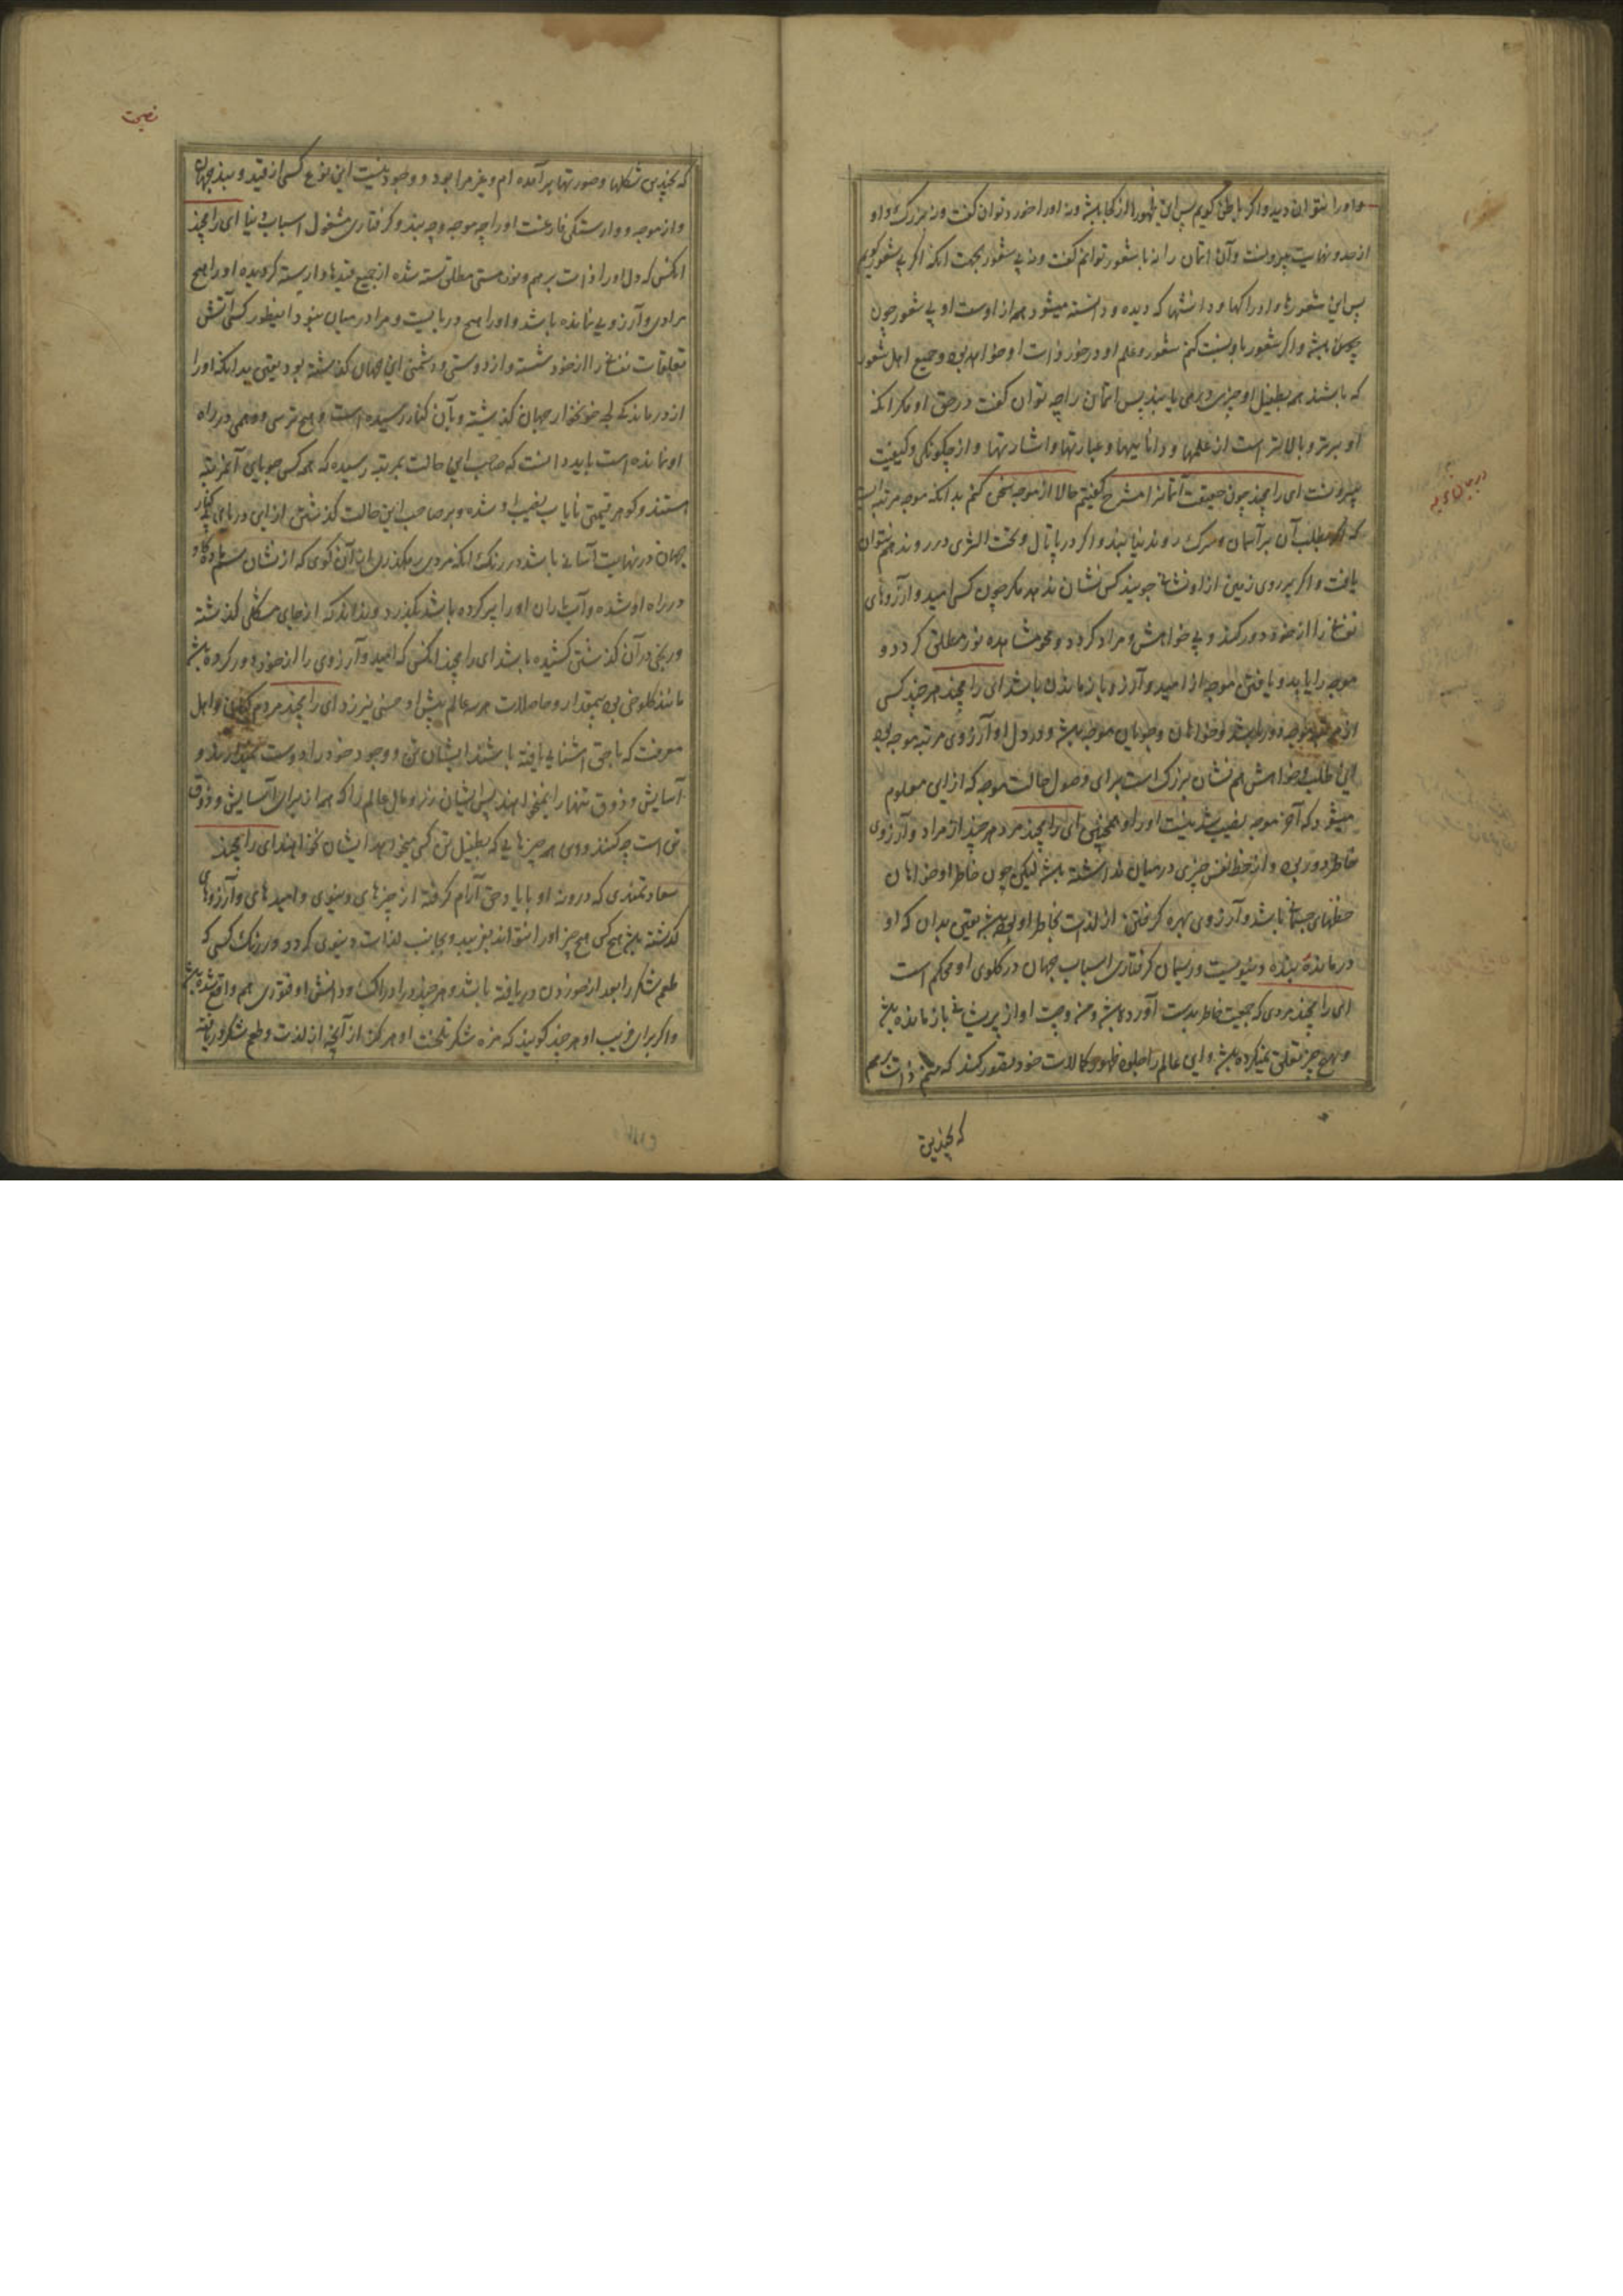 و او را نتوان دید و اگر باطن گویم پس این ظهورها از کجا باشد و نه او را خورد توان گفت و نه بزرک و او
از حد و نهایت بیرونست و آن اتمان را نه با شعور توانم گفت و نه بی شعور بجهت آنکه اگر بی شعور گویم
پس این شعورها و ادراکها و دانشها که دیده و دانسته میشود همه از اوست او بی شعور چون
باشد و اگر شعور باو نسبت کنم شعور و علم او در خور ذات او خواهد بود و جمیع اهل شعور
که باشند همه بطفیل او چیزی در می یابند پس اتمان را چه توان گفت در حق او مگر آنکه
او برتر و بالاتر است از علمها و دانائیها و عبارتها و اشارتها و از چگونگی و کیفیت
بیرونست ای رامچند چون حقیقت آتمانرا مشرح گفتیم حالا از موجه سخن کنم بدانکه موجه مرتبه ایست
که اگر بطلب آن بر آسمان و سرک روند نیابند و اگر در پاتال و تحت الثری در روند هم نتوان
یافت و اگر بر روی زمین از او نشانی جویند کس نشان ندهد مگر چون کسی امید و آرزوهای
نفسانی را از خود دور کند و بی خواهش و مراد گردد و محو مشاهده نور مطلق گردد و
موجه را یابد و یافتن موجه از امید و آرزو باز ماندن باشد ای رامچند هر چند کسی
از مرتبه موجه دور باشد و خواهان و جویان موجه باشد و در دل او آرزوی مرتبه موجه بود
این طلب و خواهش هم نشان بزرک است برای وصول حالت موجه که از این معلوم
میشود که آخر موجه نصیب شدنیست او را و همچنین ای رامچند مرد هر چند از مراد و آرزوی
خاطر دور بود و از حظ نفس چیزی در میان نداشته باشد لیکن چون خاطر او خواهان
حظهای جسمانی باشد و آرزوی بهره گرفتن از لذات بخاطر او بود باشد یقین بدان که او
درمانده بنده دنیویست و ریسمان گرفتاری اسباب جهان در گلوی او محکم است
ای رامچند مردی که جمعیت خاطر بدست آورده باشد و من و جت او از پریشانی باز مانده باشد
و بهیچ چیز تعلق نمیکرده باشد و این عالم را جلوه ظهور و کمالات خود تصور کند که منم ذات برهم
که بچندین
در بیان موجه
نصیحت
که بچندین شکلها و صورتها بر آمده ام و غیر مرا بود و وجود نیست این نوع کسی از قید و بند جهان
و از موجه و وارستگی فارغست او را چه موجه و چه بند و گرفتاری مشغول اسباب دنیا ای رامچند
آنکس که دل او را ذات برهم و نور هستی مطلق بسته شده از جمیع قیدها وارسته گردیده او را هیچ
مرادی و آرزویی نمانده باشد و او را هیچ دربایست و مرا در میان نبود اینطور کسی آتش
تعلقات نفسانی را از خود شسته و از دوستی و دشمنی این جهان گذشته بود یقین بدانکه او را
از دریای بحر خونخوار جهان گذشته و بآن کنار رسیده است و هیچ ترسی و وهمی در راه
او نمانده است باید دانست که صاحب این حالت بمرتبه رسیده که همه کس جویای آن مرتبه
استند و گوهر قیمتی نایاب نصیب او شده و بر صاحب این حالت گذشتن از این دریای
جهان در نهایت آسانی باشد در رنگ آنکه مردی بگذرد از آن گوی که از نشان سم گاو
در راه او شده و آب باران او را پر کرده باشد بگذرد و نداند که از جای مشکلی گذشته
و رنجی در آن گذشتن کشیده باشد ای رامچند آنکس که امید و آرزوی را از خود دور کرده باشد
مانند کلوخی بی مقدار و حاصلات هر سه عالم پیش او خسی نیرزد ای رامچند مردم گیانی و اهل
معرفت که با حق آشنایی یافته باشند ایشان تن و وجود خود را دوست نمیدارند و
آسایش و ذوق تنها را نمیخواهند پس ایشان زر و مال عالم را که همه از برای آسایش و ذوق
تن است چه کنند و وی هر چیزهایی که بطفیل تن کسی میخواهد ایشان نخواهند ای رامچند
سعادتمندی که درونه او با یاد حق آرام گرفته از چیزهای دنیوی و امیدهای و آرزوهای
گذشته باشد هیچ کس و هیچ چیز او را نتواند فریبد و بجانب لذات دنیوی گردد و در رنگ کسی که
طعم شکر را بعد از خوردن دریافته باشد و هر چند در ادراک و دانش او فتوری هم واقع شده باشد
و اگر برای فریب او هر چند گویند که مزه شکر تلخست او هرگز از آنچه از لذت و طعم شکر دریافته